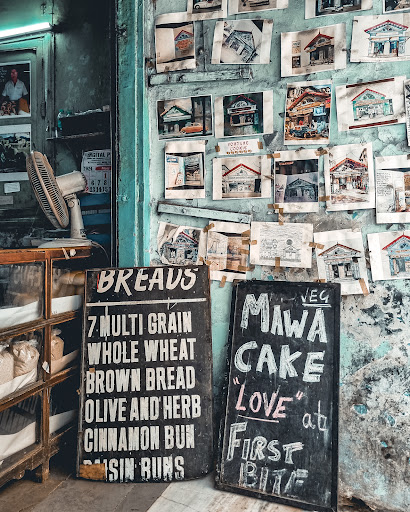 BREADS
7 MULTI GRAIN
WHOLE WHEAT
BROWN BREAD
OLIVE AND HERB
CINNAMON BUN
RAISIN BUNS
VEG
MAWA
CAKE
"LOVE" at
FIRST
BITE